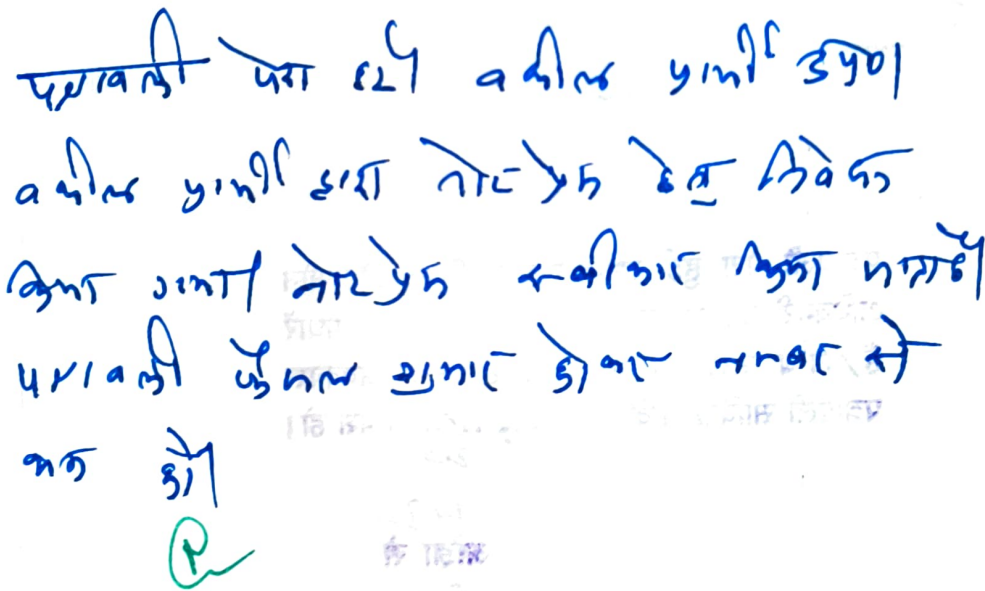 पत्रावली पेश हुई। वकील प्रार्थी उप०।
वकील प्रार्थी द्वारा नोट प्रेस हेतु निवेदन
किया गया। नोट प्रेस स्वीकार किया जाता है।
पत्रावली फैसल शुमार होकर नम्बर से
कम हो।